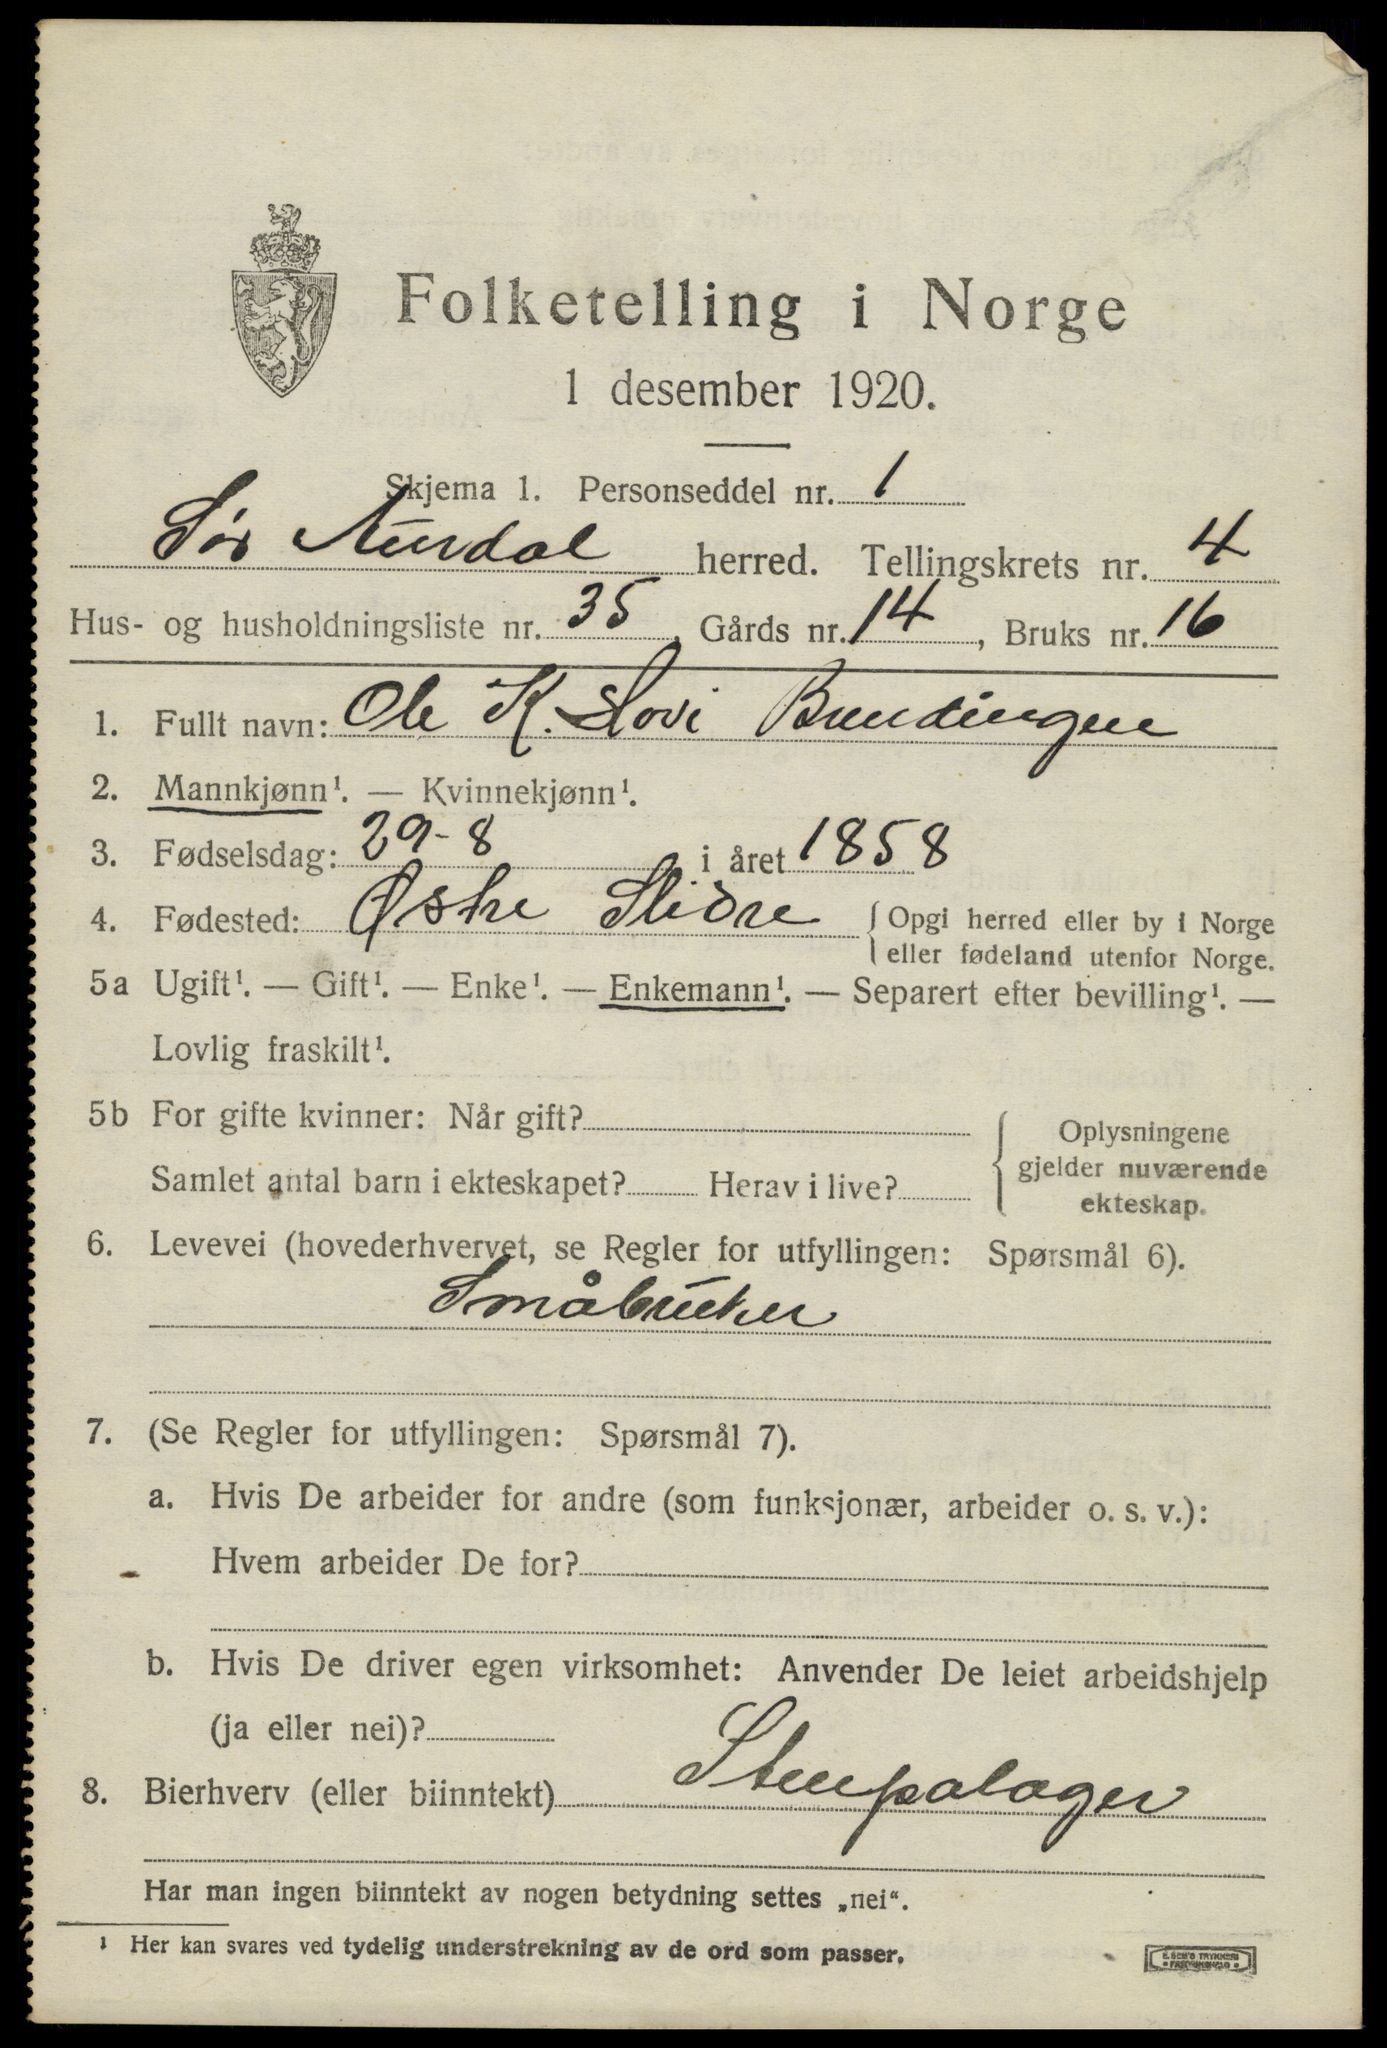 Folketelling i Norge
1 desember 1920.
Skjema 1. Personseddel nr. 1
Sør Aurdal herred. Tellingskrets nr. 4
Hus- og husholdningsliste nr. 35, Gårds nr. 14, Bruks nr. 16
1. Fullt navn: Ole K. Lovi Brundingen
2. Mannkjønn¹. — Kvinnekjønn¹.
3. Fødselsdag: 29-8 i året 1858
4. Fødested: Østre Slidre { Opgi herred eller by i Norge
eller fødeland utenfor Norge.
5a Ugift¹. — Gift¹. — Enke¹. — Enkemann¹. — Separert efter bevilling¹. —
Lovlig fraskilt¹.
5b For gifte kvinner: Når gift? { Oplysningene
gjelder nuværende
ekteskap.
Samlet antal barn i ekteskapet? Herav i live?
6. Levevei (hovederhvervet, se Regler for utfyllingen: Spørsmål 6).
Småbruker
7. (Se Regler for utfyllingen: Spørsmål 7).
a. Hvis De arbeider for andre (som funksjonær, arbeider o. s. v.):
Hvem arbeider De for?
b. Hvis De driver egen virksomhet: Anvender De leiet arbeidshjelp
(ja eller nei)?
8. Bierhverv (eller biinntekt)
Har man ingen biinntekt av nogen betydning settes „nei“.
¹ Her kan svares ved tydelig understrekning av de ord som passer.